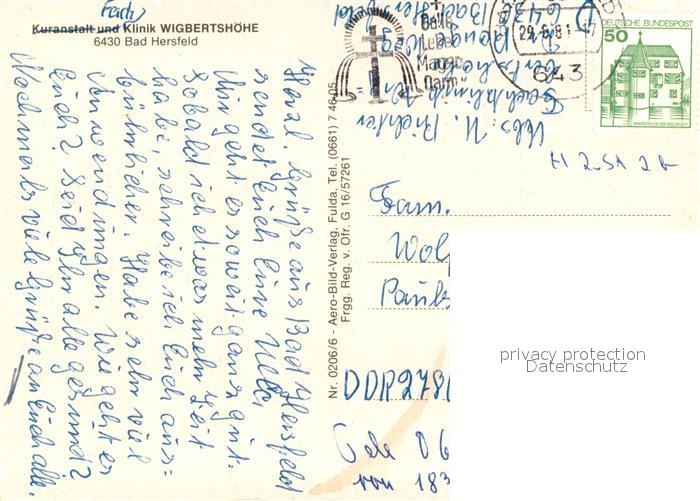 Fach
Kuranstalt und Klinik WIGBERTSHÖHE
6430 Bad Hersfeld
Herzl. Grüße aus Bad Hersfeld
sendet Euch Eure Uta.
Mir geht es soweit ganz gut.
Sobald ich etwas mehr Zeit
habe, schreibe ich Euch aus-
führlicher. Habe sehr viel
Anwendungen. Wie geht es
Euch? Seid Ihr alle gesund?
Nochmals viele Grüße an Euch alle.
Nr. 0206/6 - Aero-Bild-Verlag, Fulda, Tel. (0661) 7 46 05
Frgg. Reg. v. Ofr. G 16/57261
Abs: U. Richter
Fachklinik
D 6430 Bad Hersfeld
Leben
Magen
Darm
29.6.81
643
DEUTSCHE BUNDESPOST
50
WASSERSCHLOSS INZLINGEN
Fam.
Wolf
Pauls
DDR 278
von 183
privacy protection
Datenschutz